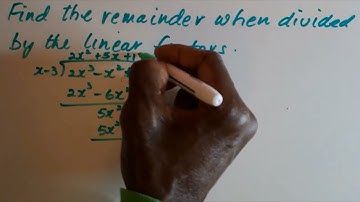 Find the remainder when divided
by the linear factors.
2x² + 5x + 1
x-3 2x³ - x²
2x³ - 6x²
5x²
5x²